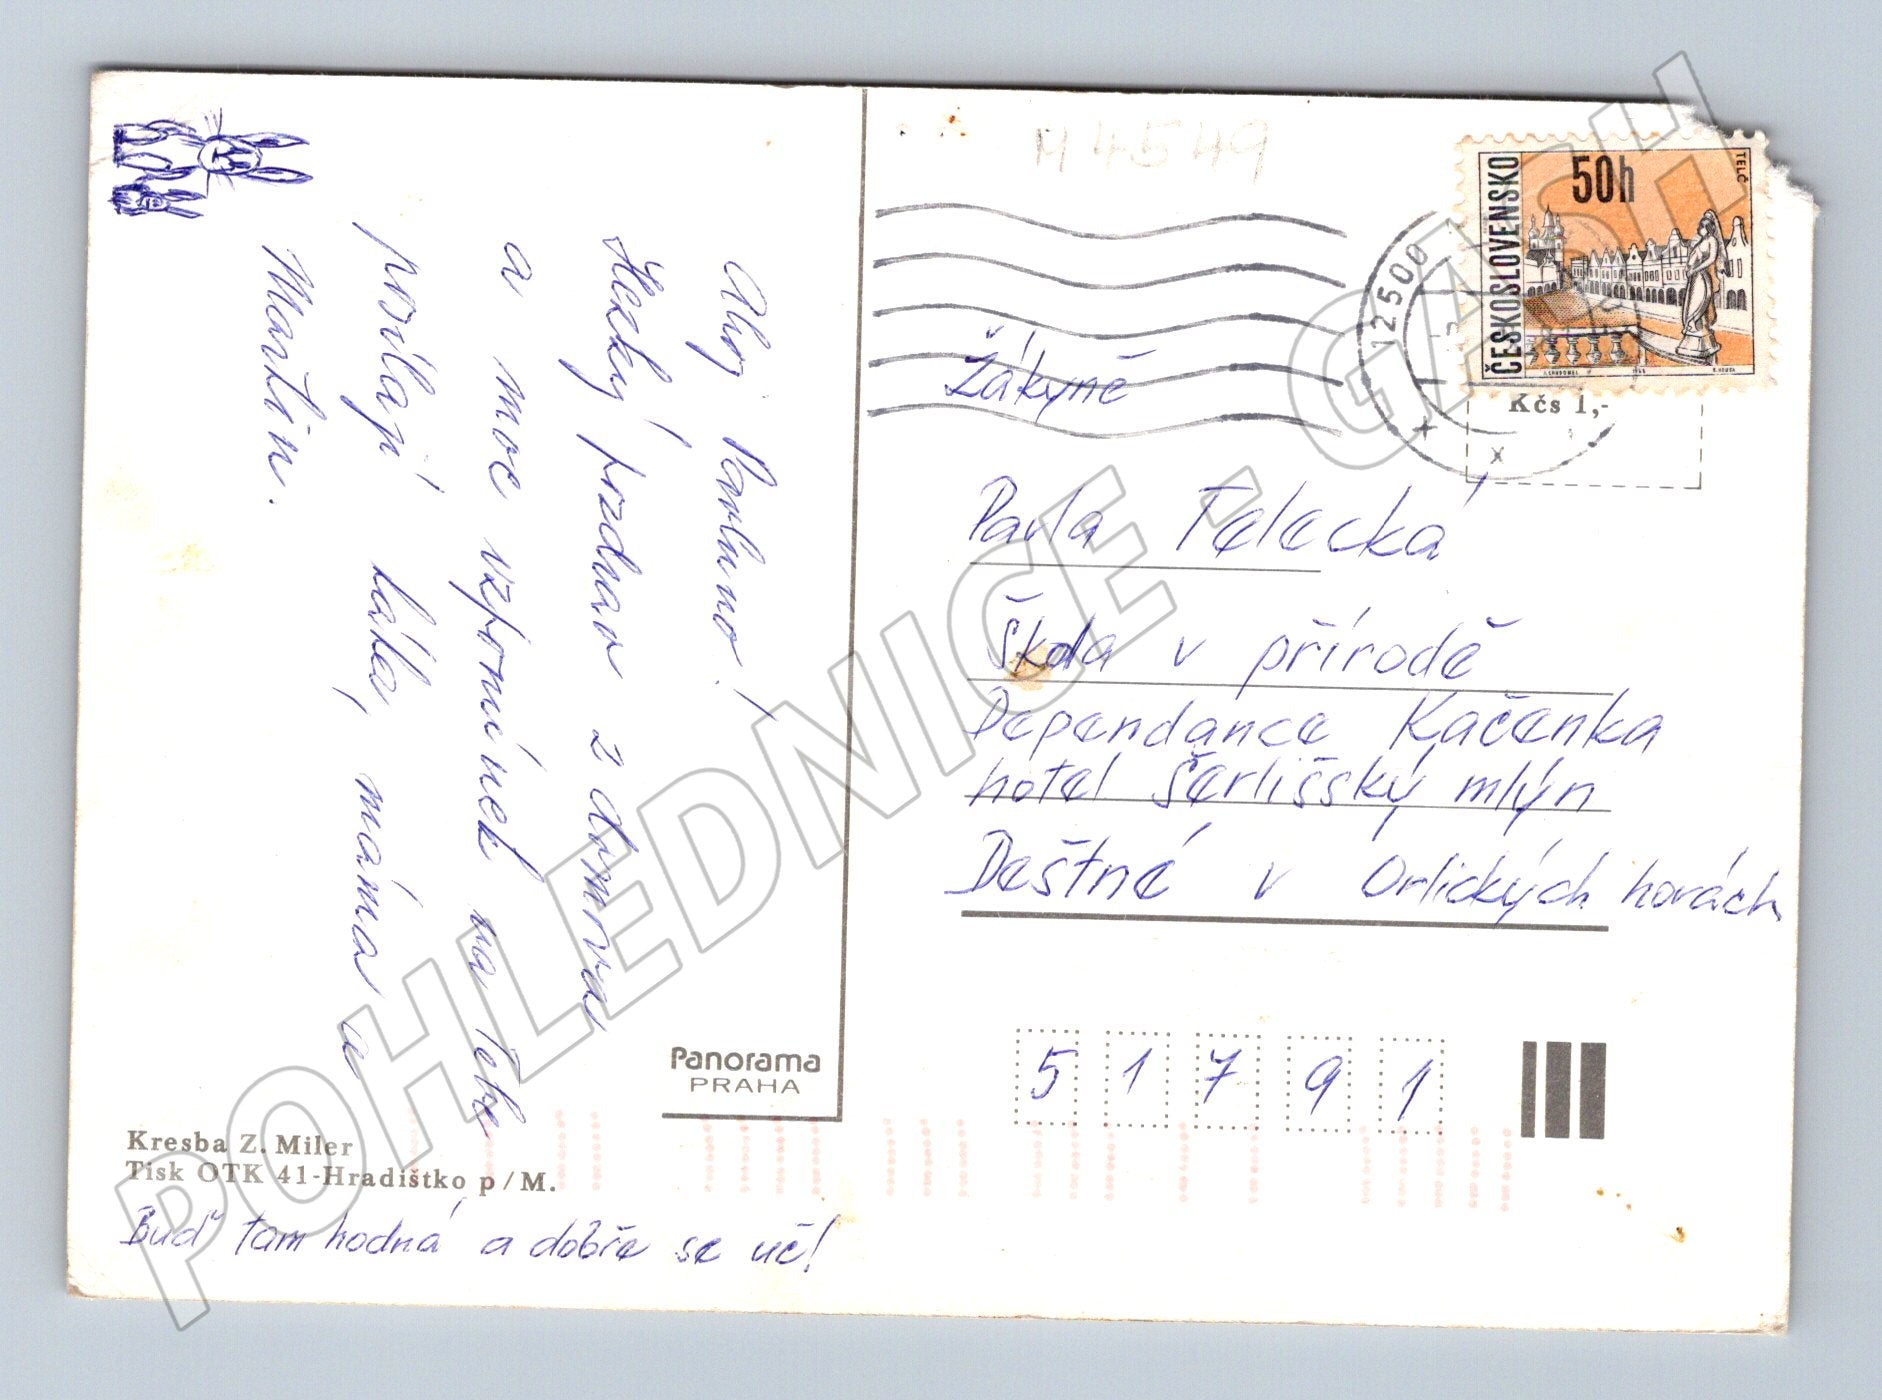 Ahoj Pavlíno!
Hezký pozdrav z domova
a moc vzpomínek na Tebe
posílají táta, máma a
Martin.
Kresba Z. Miler
Tisk OTK 41-Hradištko p/M.
Buď tam hodná a dobře se uč!
Panorama
PRAHA
M4549
ČESKOSLOVENSKO
50h
TELČ
12500
Kčs 1,-
Žákyně
Pavla Telecká
Škola v přírodě
Dependance Kačenka
hotel Šerlišský mlýn
Deštné v Orlických horách
51791
POHLEDNICE - GASH